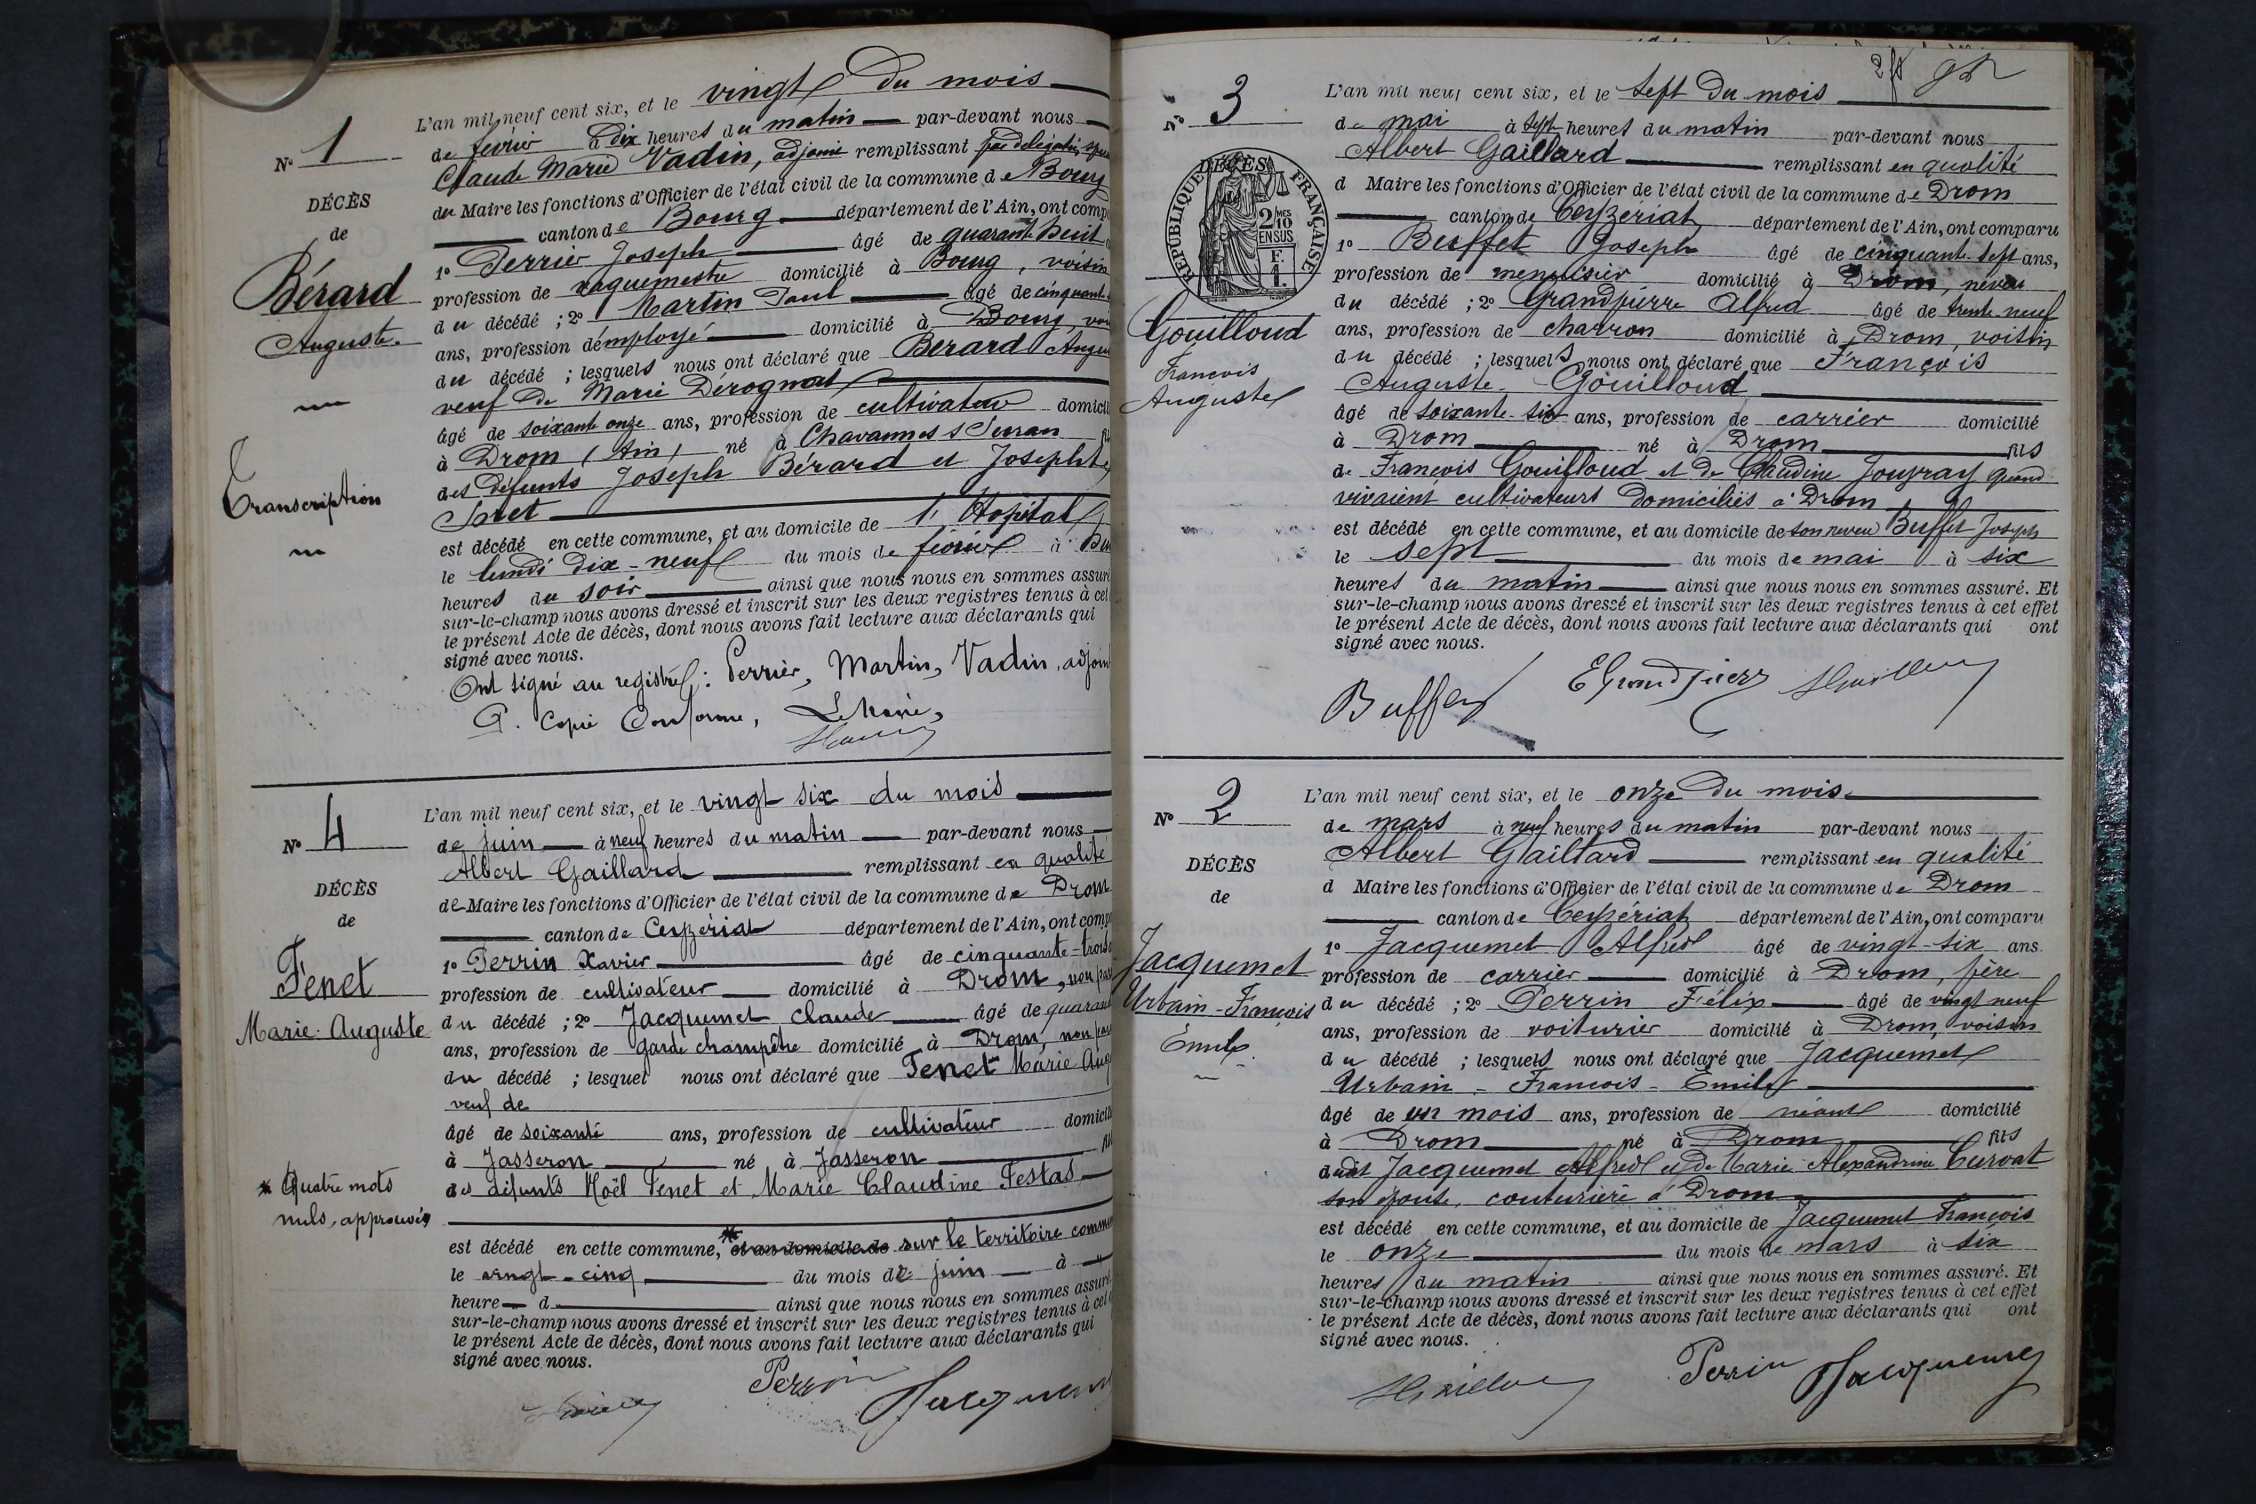 N° 1
DÉCÈS
de
Bérard
Auguste
Transcription
L'an mil neuf cent six, et le vingt du mois
de février à dix heures du matin par-devant nous
Claude Marie Vadin, adjoint remplissant par délégation
du Maire les fonctions d'Officier de l'état civil de la commune de Bourg
canton de Bourg département de l'Ain, ont comp
1° Perrier Joseph âgé de quarante huit
profession de vaguemestre domicilié à Bourg, voisin
du décédé ; 2° Martin Paul âgé de cinquante
ans, profession d'employé domicilié à Bourg, voi
du décédé ; lesquels nous ont déclaré que Bérard Augus
veuf de Marie Dérognat
âgé de soixante onze ans, profession de cultivateur domicili
à Drom (Ain) né à Chavannes s Suran
des défunts Joseph Bérard et Josephte
est décédé en cette commune, et au domicile de l'Hopital
le lundi dix-neuf du mois de février à
heures du soir ainsi que nous nous en sommes assuré
sur-le-champ nous avons dressé et inscrit sur les deux registres tenus à cet
le présent Acte de décès, dont nous avons fait lecture aux déclarants qui
signé avec nous.
Ont signé au registre : Perrier, Martin, Vadin, adjoint
P. Copie Conforme, Le Maire,
N° 4
DÉCÈS
de
Fenet
Marie Auguste
* Quatre mots
nuls, approuvés
L'an mil neuf cent six, et le vingt six du mois
de juin à neuf heures du matin par-devant nous
Albert Gaillard remplissant en qualité
de Maire les fonctions d'Officier de l'état civil de la commune de Drom
canton de Ceyzériat département de l'Ain, ont comp
1° Perrin Xavier âgé de cinquante-trois
profession de cultivateur domicilié à Drom, non par
du décédé ; 2° Jacquemet Claude âgé de quarant
ans, profession de garde champêtre domicilié à Drom, non par
du décédé ; lesquel nous ont déclaré que Fenet Marie Aug
veuf de
âgé de soixante ans, profession de cultivateur domicili
à Jasseron né à Jasseron
des défunts Noël Fenet et Marie Claudine Festas
est décédé en cette commune, * et au domicile de sur le territoire commu
le vingt-cinq du mois de juin à
heure d ainsi que nous nous en sommes assuré
sur-le-champ nous avons dressé et inscrit sur les deux registres tenus à cet
le présent Acte de décès, dont nous avons fait lecture aux déclarants qui
signé avec nous.
Perrin Jacquemet
N° 3
DÉCÈS
RÉPUBLIQUE FRANÇAISE
2 MES
10
EN SUS
F.
1.
Gouilloud
François
Auguste
L'an mil neuf cent six, et le sept du mois
de mai à sept heures du matin par-devant nous
Albert Gaillard remplissant en qualité
d Maire les fonctions d'Officier de l'état civil de la commune de Drom
canton de Ceyzériat département de l'Ain, ont comparu
1° Buffet Joseph âgé de cinquante-sept ans,
profession de menuisier domicilié à Drom, neveu
du décédé ; 2° Grandpierre Alfred âgé de trente neuf
ans, profession de charron domicilié à Drom, voisin
du décédé ; lesquels nous ont déclaré que François
Auguste Gouilloud
âgé de soixante-six ans, profession de carrier domicilié
à Drom né à Drom fils
de François Gouilloud et de Claudine Jouvray quand
vivaient cultivateurs domiciliés à Drom
est décédé en cette commune, et au domicile de son neveu Buffet Joseph
le sept du mois de mai à six
heures du matin ainsi que nous nous en sommes assuré. Et
sur-le-champ nous avons dressé et inscrit sur les deux registres tenus à cet effet
le présent Acte de décès, dont nous avons fait lecture aux déclarants qui ont
signé avec nous.
Buffet Grandpierre
N° 2
DÉCÈS
de
Jacquemet
Urbain-François
Emile
L'an mil neuf cent six, et le onze du mois
de mars à neuf heures du matin par-devant nous
Albert Gaillard remplissant en qualité
d Maire les fonctions d'Officier de l'état civil de la commune de Drom
canton de Ceyzériat département de l'Ain, ont comparu
1° Jacquemet Alfred âgé de vingt-six ans
profession de carrier domicilié à Drom, père
du décédé ; 2° Perrin Félix âgé de vingt neuf
ans, profession de voiturier domicilié à Drom, voisin
du décédé ; lesquels nous ont déclaré que Jacquemet
Urbain-François-Emile
âgé de un mois ans, profession de néant domicilié
à Drom né à Drom fils
dudit Jacquemet Alfred et de Marie Alexandrine Curvat
son épouse, couturière à Drom
est décédé en cette commune, et au domicile de Jacquemet François
le onze du mois de mars à six
heures du matin ainsi que nous nous en sommes assuré. Et
sur-le-champ nous avons dressé et inscrit sur les deux registres tenus à cet effet
le présent Acte de décès, dont nous avons fait lecture aux déclarants qui ont
signé avec nous.
Perrin Jacquemet